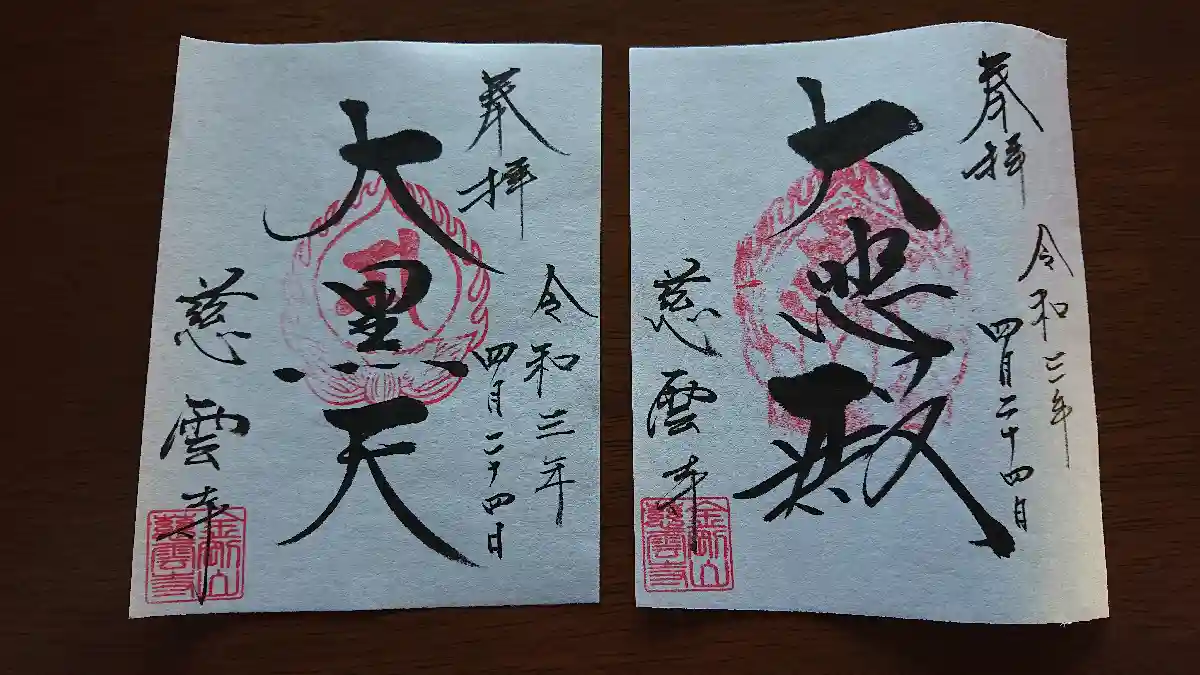 奉拝
令和三年
四月二十四日
大黒天
慈雲寺
金剛山
慈雲寺
奉拝
令和三年
四月二十四日
大悲殿
慈雲寺
金剛山
慈雲寺